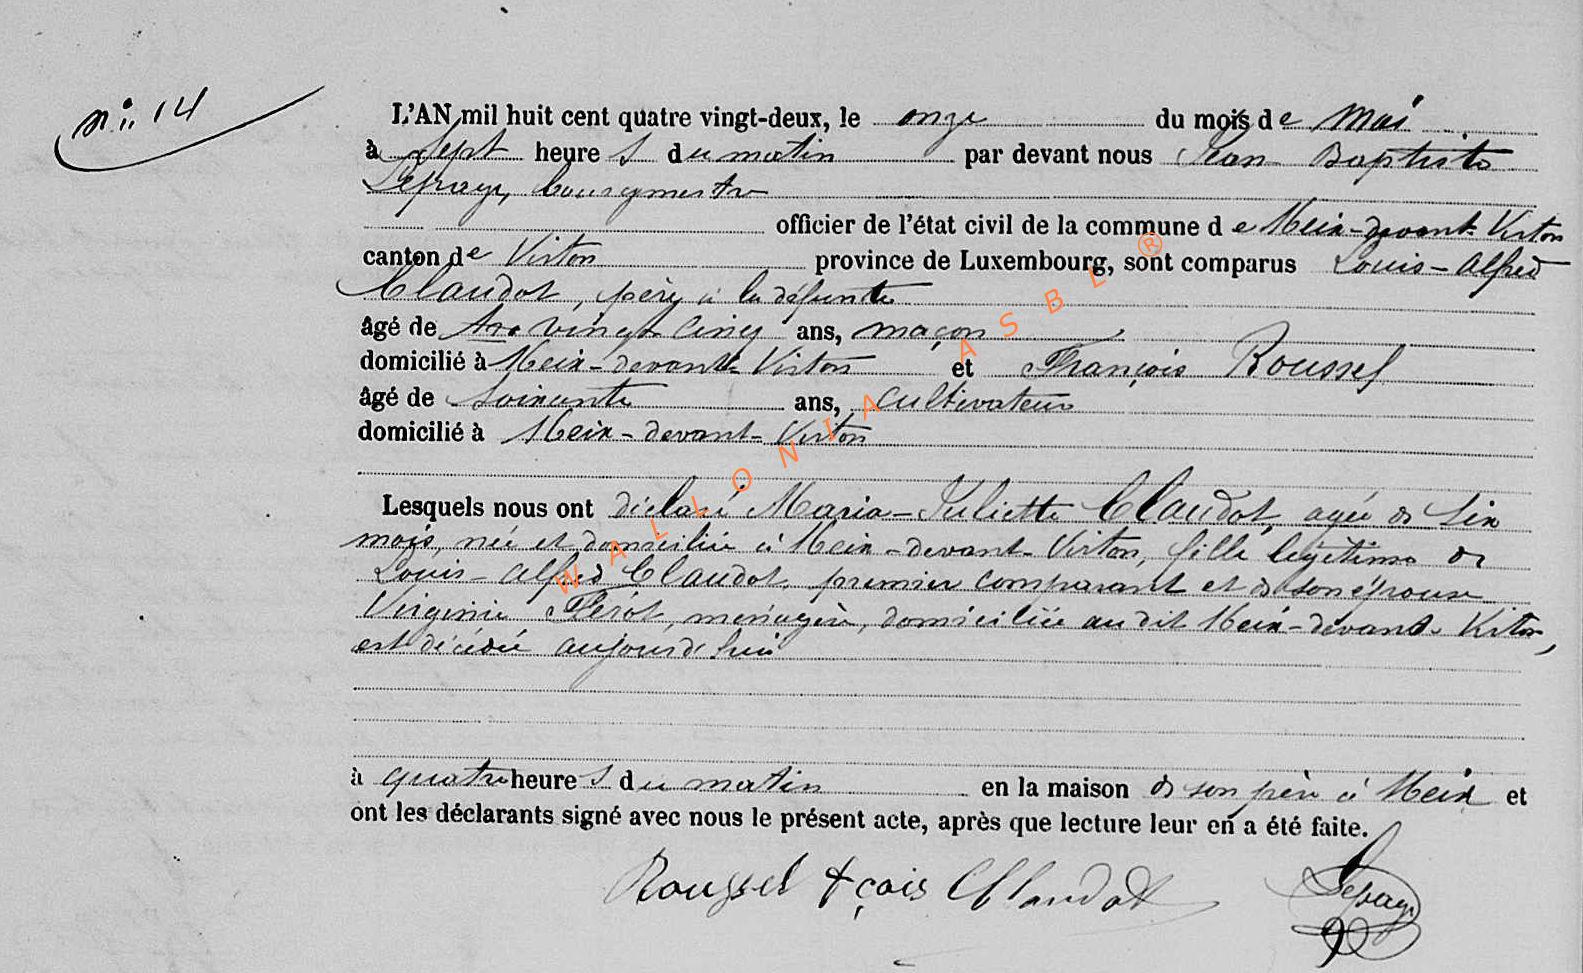 n° 14
L'AN mil huit cent quatre vingt-deux, le onze du mois de Mai
à sept heures du matin par devant nous Jean Baptiste
Lepage, bourgmestre
officier de l'état civil de la commune de Meix-devant-Virton
canton de Virton province de Luxembourg, sont comparus Louis-Alfred
Claudot, père à la défunte
âgé de vingt cinq ans, maçon
domicilié à Meix-devant-Virton et François Roussel
âgé de soixante ans, cultivateur
domicilié à Meix-devant-Virton
Lesquels nous ont déclaré Maria-Juliette Claudot, agée de six
mois, née et domiciliée à Meix-devant-Virton, fille légitime de
Louis-Alfred Claudot, premier comparant et de son épouse
Virginie Férot, ménagère, domiciliée au dit Meix-devant-Virton,
est décédée aujourd'hui
à quatre heures du matin en la maison de son père à Meix et
ont les déclarants signé avec nous le présent acte, après que lecture leur en a été faite.
Roussel fçois Claudot Lepage
WALLONIA ASBL ®